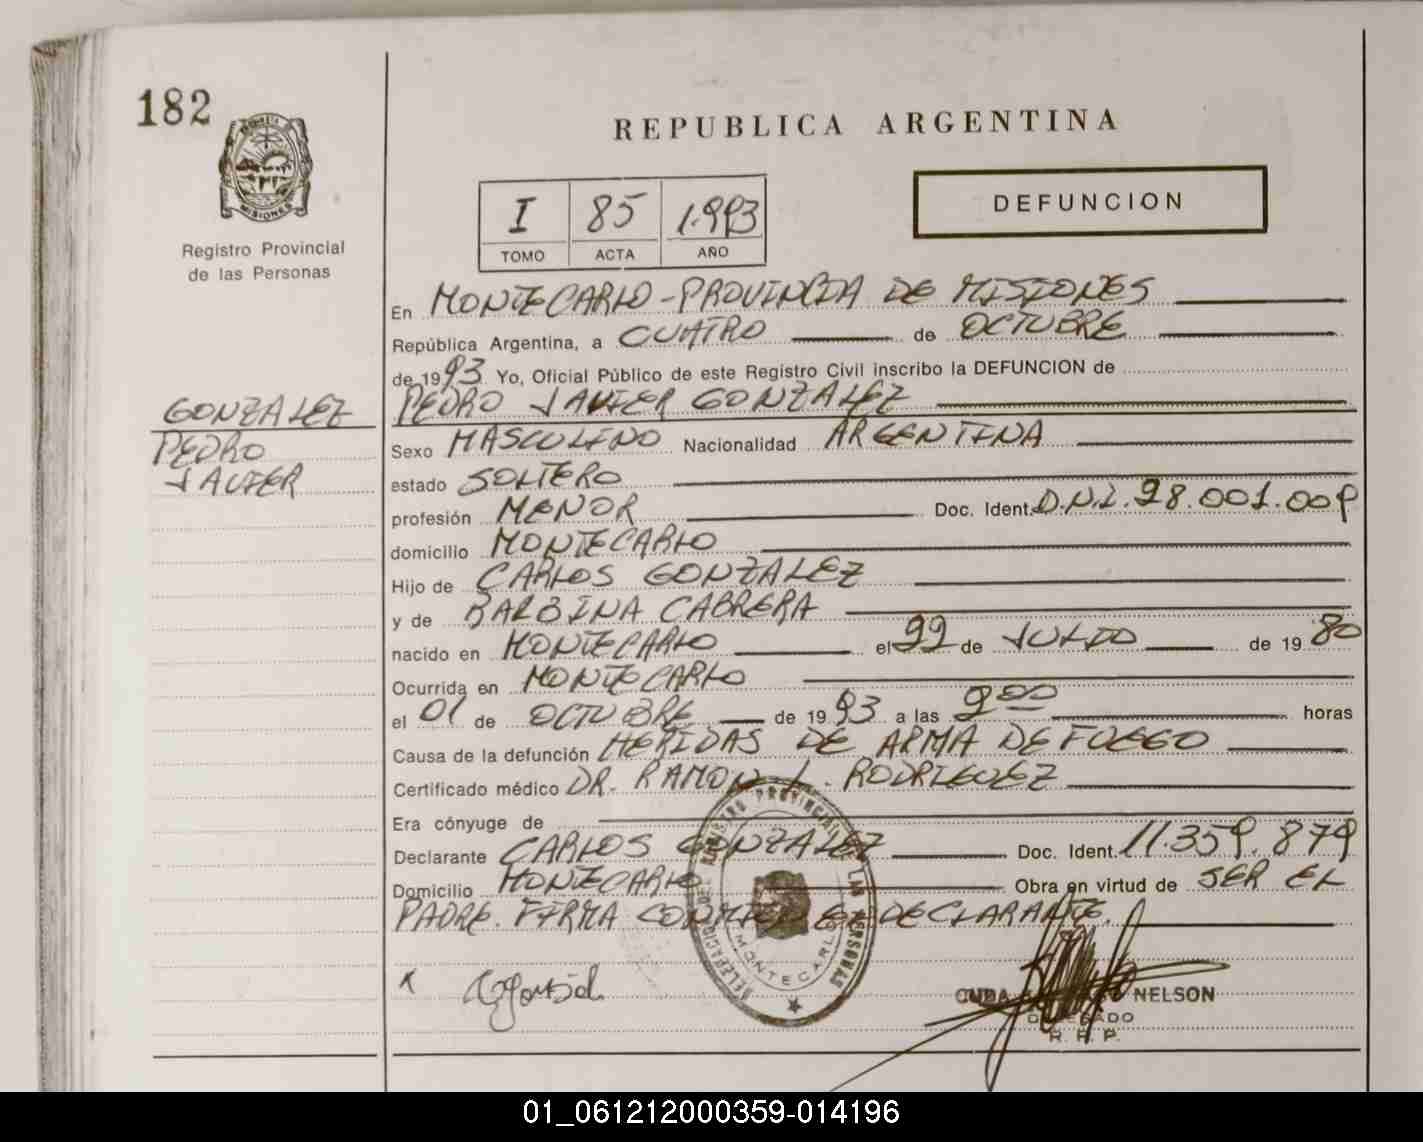 182
MISIONES
Registro Provincial
de las Personas
REPUBLICA ARGENTINA
I 85 1.993
TOMO ACTA AÑO
DEFUNCION
En MONTECARLO - PROVINCIA DE MISIONES
República Argentina, a CUATRO de OCTUBRE
de 1993. Yo, Oficial Público de este Registro Civil inscribo la DEFUNCION de
GONZALEZ
PEDRO
JAVIER
PEDRO JAVIER GONZALEZ
Sexo MASCULINO Nacionalidad ARGENTINA
estado SOLTERO
profesión MENOR Doc. Ident. D.N.I. 28.001.009
domicilio MONTECARLO
Hijo de CARLOS GONZALEZ
y de BALBINA CABRERA
nacido en MONTECARLO el 22 de JULIO de 1980
Ocurrida en MONTECARLO
el 01 de OCTUBRE de 1993 a las 9 00 horas
Causa de la defunción HERIDAS DE ARMA DE FUEGO
Certificado médico DR. RAMON L. RODRIGUEZ
Era cónyuge de
Declarante CARLOS GONZALEZ Doc. Ident. 11.359.879
Domicilio MONTECARLO Obra en virtud de SER EL
PADRE. FIRMA CONMIGO EL DECLARANTE.
REGISTRO PROVINCIAL DE LAS PERSONAS
MONTECARLO
NELSON
DELEGADO
R. P. P.
01_061212000359-014196